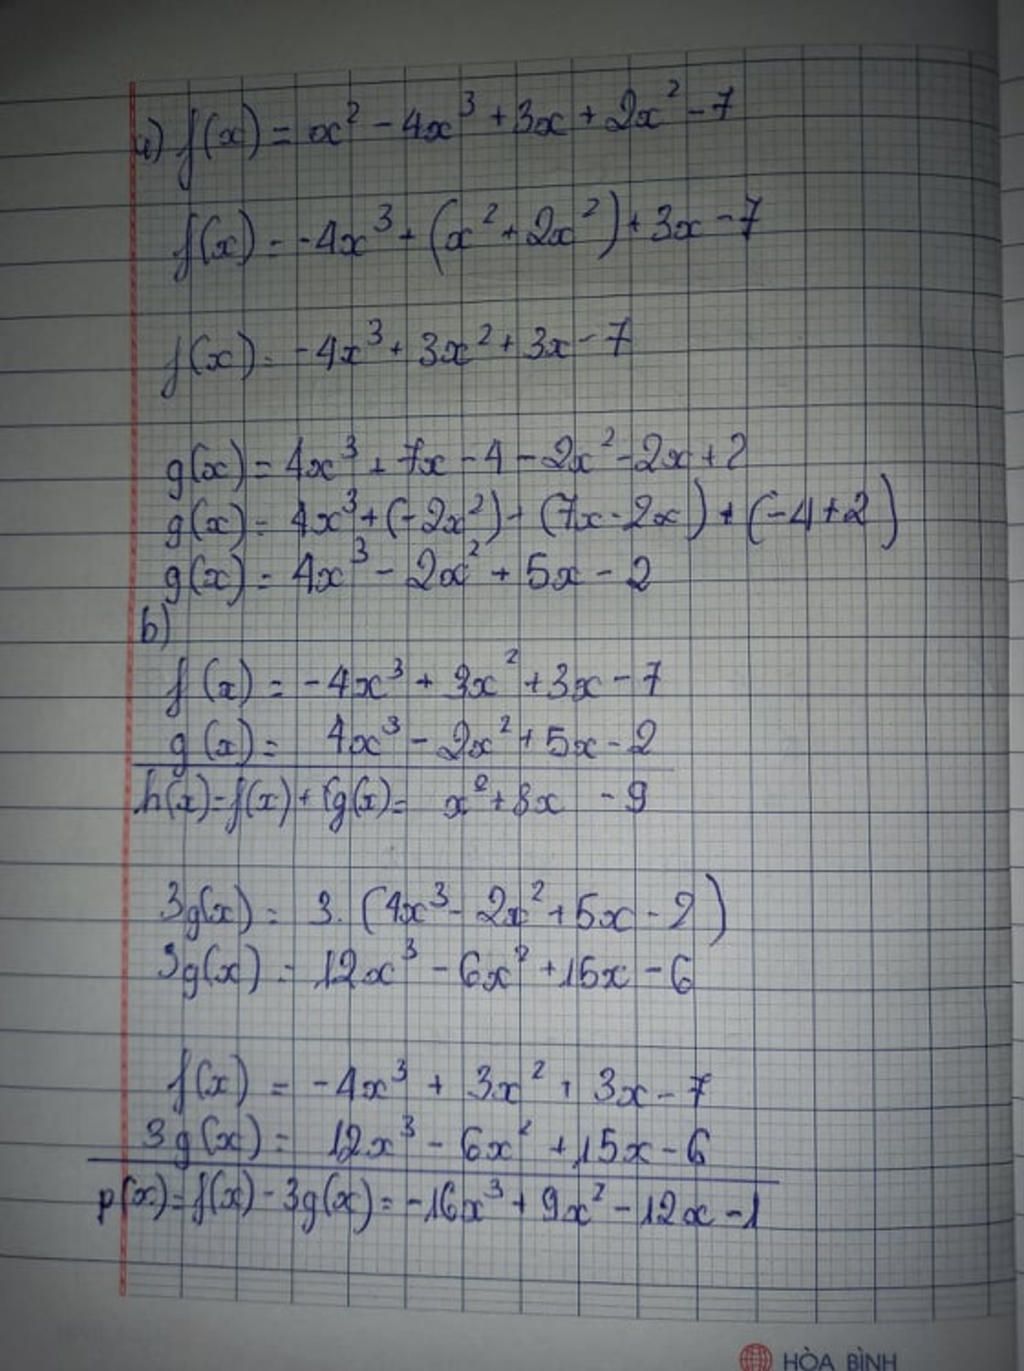 a) f(x) = x² - 4x³ + 3x + 2x² - 7
f(x) = -4x³ + (x² + 2x²) + 3x - 7
f(x) = -4x³ + 3x² + 3x - 7
g(x) = 4x³ + 7x - 4 - 2x² - 2x + 2
g(x) = 4x³ + (-2x²) + (7x - 2x) + (-4 + 2)
g(x) = 4x³ - 2x² + 5x - 2
b)
f(x) = -4x³ + 3x² + 3x - 7
g(x) = 4x³ - 2x² + 5x - 2
h(x) = f(x) + g(x) = x² + 8x - 9
3g(x) = 3. (4x³ - 2x² + 5x - 2)
3g(x) = 12x³ - 6x² + 15x - 6
f(x) = -4x³ + 3x² + 3x - 7
3g(x) = 12x³ - 6x² + 15x - 6
p(x) = f(x) - 3g(x) = -16x³ + 9x² - 12x - 1
HÒA BÌNH